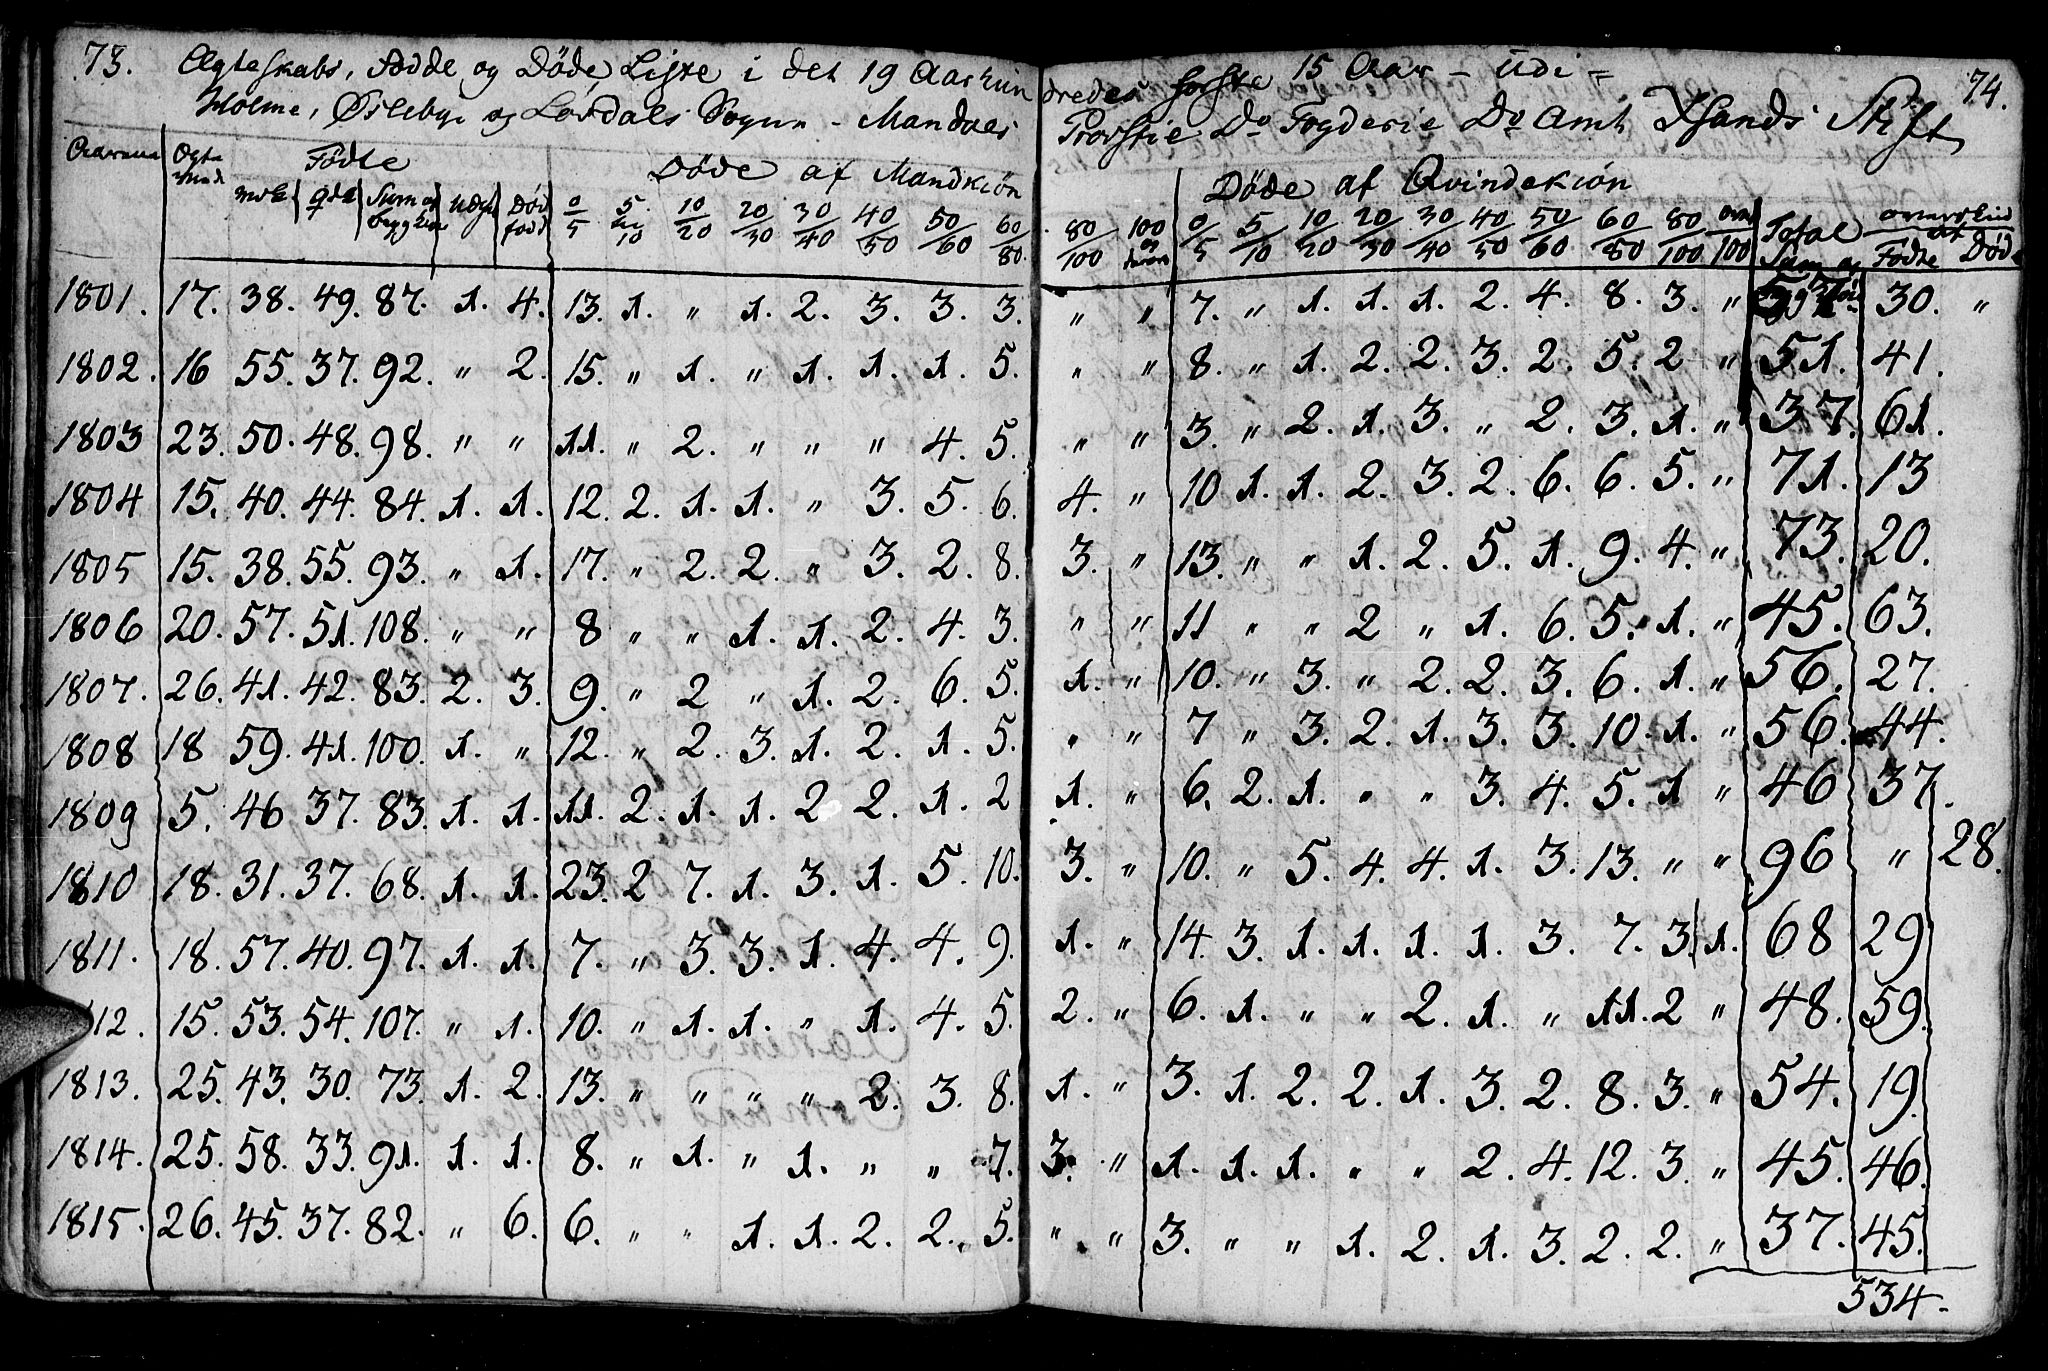 73. Ægteskabs, Födde og Döde Liste i det 19 Aarhun dredes første 15 Aar - udi = 74.
Holme, Øslebye og Løvdals Sogne - Mandals Provstie Do Fogderie Do Amt Xsands Stift
Aarene Ægte viede Födte Döde af Mandkiön Döde af Qvindekiön Total overskud af
mdk qdk Sum og begge kiön Uægt Död född 0/5 5 til 10 10/20 20/30 30/40 40/50 50/60 60/80 80/100 100 og derover 0/5 5/10 10/20 20/30 30/40 40/50 50/60 60/80 80/100 over 100 Sum og Födte Döde
1801. 17. 38. 49. 87. 1. 4. 13. 1. " 1. 2. 3. 3. 3. " " 7. " 1. 1. 1. 2. 4. 8. 3. " 30. "
1802. 16 55. 37. 92. " 2. 15. " 1. " 1. 1. 1. 5. " " 8. " 1. 2. 2. 3. 2. 5. 2 " 51. 41.
1803 23. 50. 48. 98. " " 11. " 2. " " " 4. 5. " " 3. " 2. 1. 3. " 2. 3. 1. " 37. 61.
1804 15. 40. 44. 84. 1. 1. 12. 2. 1. 1. " 3. 5. 6. 4. " 10 1. 1. 2. 3. 2. 6. 6. 5. " 71. 13
1805 15. 38. 55. 93. " 1. 17. " 2. 2. " 3. 2. 8. 3. " 13. " " 1. 2. 5. 1. 9. 4. " 73. 20.
1806 20. 57. 51. 108. " " 8 " " 1. 1. 2. 4. 3. " " 11 " " 2 " 1. 6. 5. 1. " 45. 63.
1807. 26. 41. 42. 83. 2. 3. 9. " 2 " 1. 2. 6. 5. 1. " 10. " 3. " 2. 2. 3. 6. 1. " 56. 27.
1808 18 59. 41. 100. 1. " 12. " 2. 3. 1. 2. 1. 5. " " 7 " 3. 2. 1. 3. 3. 10. 1. " 56. 44.
1809 5. 46 37. 83. 1. 1. 11. 2. 1. 1. 2 2. 1. 2 1. " 6. 2. 1. " " 3. 4. 5. 1 " 46 37.
1810 18. 31. 37. 68. 1. 1. 23. 2 7. 1. 3. 1. 5. 10. 3. " 10. " 5. 4. 4. 1. 3. 13. " " 96 " 28.
1811. 18. 57. 40. 97. 1. 1. 7. " 3. 3. 1. 4. 4. 9. 1. " 14. 3. 1. 1. 1. 1. 3. 7. 3. 1. 68 29
12. 15. 53. 54. 107. " 1. 10. " 1. 1. " 1. 4. 5. 2. " 6. 1. " " 2. 1. " 11. 2 " 48. 59.
1813. 25. 43. 30. 73. 1. 2. 13. " " " " 2. 3. 8. 1. " 3. 1. 2. 2. 1. 3. 2. 8. 3. " 54. 19.
1814. 25. 58. 33. 91. 1. 1. 8. " 1. " 1. " " 7. 3. " 1. 1. 1. " " 2. 4. 12. 3. " 45. 46.
1815. 26. 45. 37. 82. " 6. 6. " " 1. 1. 2. 2. 5. " " 3. " " 1. 2. 1. 3. 2. 2. " 37. 45.
534.